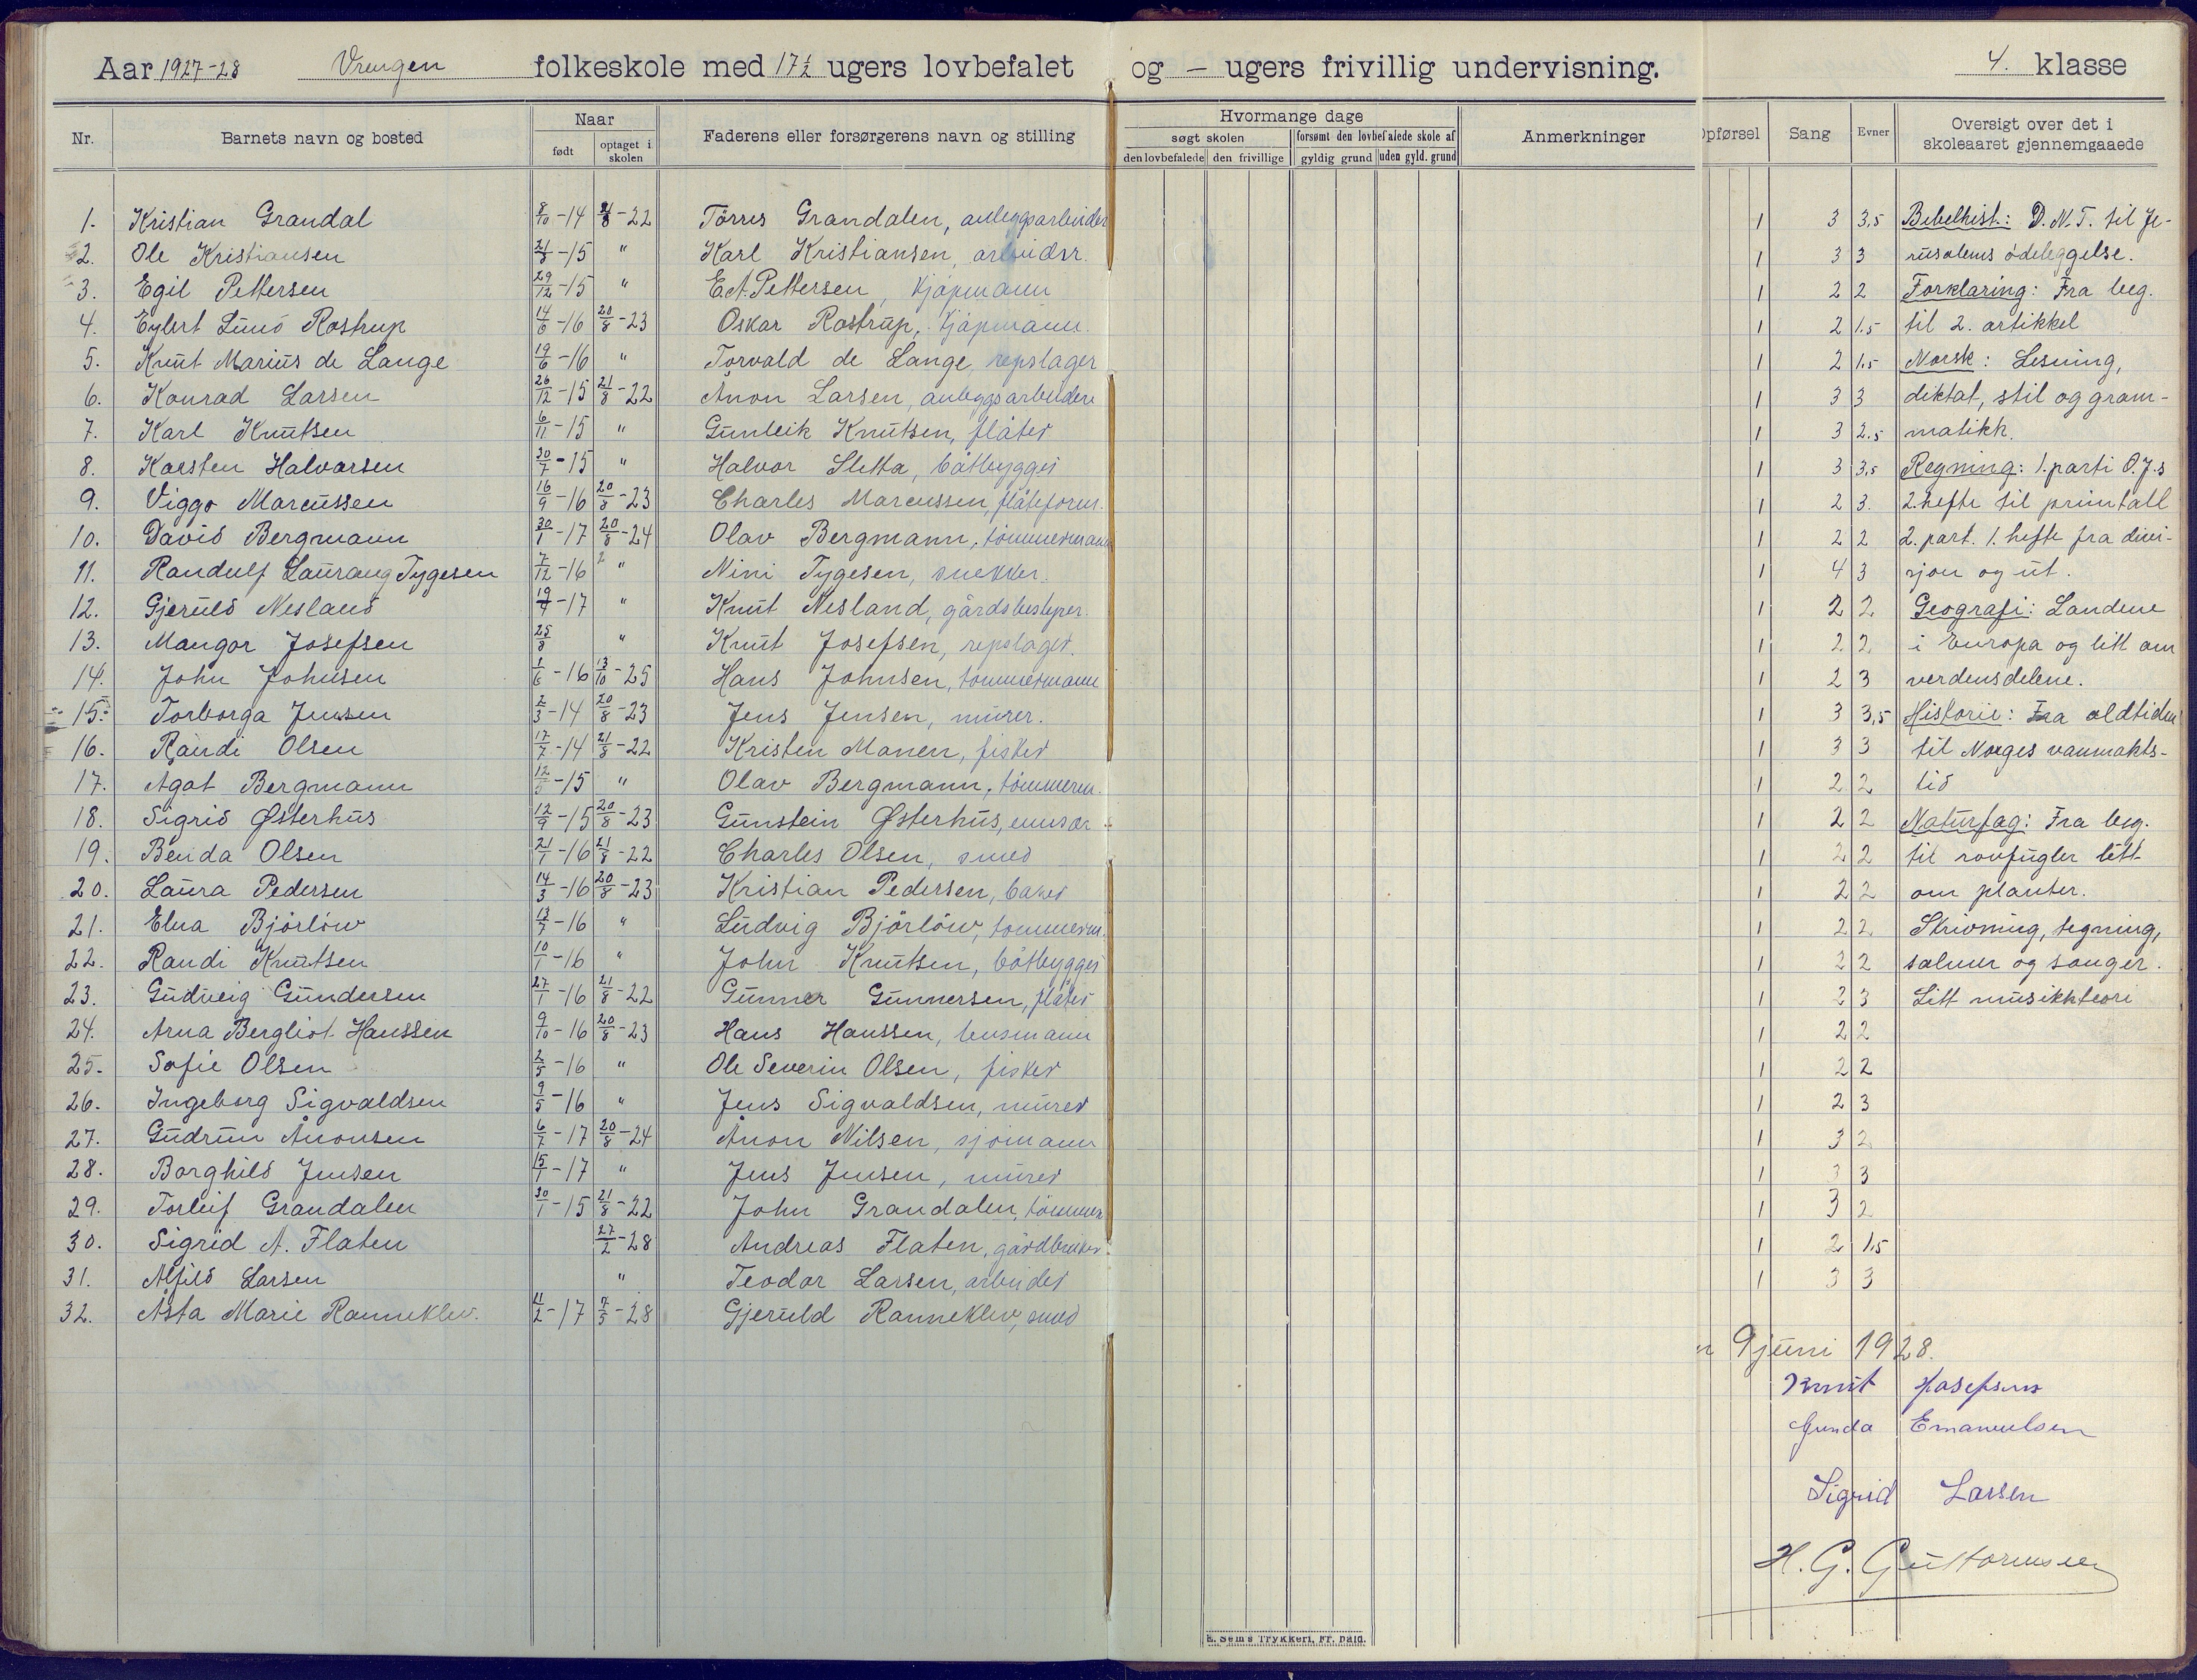 Aar 1927-28 Vrengen folkeskole med 17½ ugers lovbefalet og - ugers frivillig undervisning. 4. klasse
Nr. Barnets navn og bosted Naar født optaget i skolen Faderens eller forsørgerens navn og stilling Hvormange dage søgt skolen den lovbefalede den frivillige forsømt den lovbefalede skole af gyldig grund uden gyld. grund Anmerkninger Opførsel Sang Evner Oversigt over det i skoleaaret gjennemgaaede
1. Kristian Grandal 8/10-14 21/8-22 Törres Grandalen, anleggsarbeider 1 3 3,5 Bibelhist.: D.N.T. til Je-
2. Ole Kristiansen 21/8-15 " Karl Kristiansen, arbeider. 1 3 3 rusalems ödeleggelse.
3. Egil Pettersen 29/12-15 " E.A. Pettersen, kjöpmann 1 2 2 Forklaring: Fra beg.
4. Eylert Lund Rostrup 14/6-16 20/8-23 Oskar Rostrup, kjöpmann. 1 2 1.5 til 2. artikkel
5. Knut Marius de Lange 19/6-16 " Torvald de Lange, repslager 1 2 1.5 Norsk: Lesning,
6. Konrad Larsen 26/12-15 21/8-22 Ånon Larsen, anleggsarbeider 1 3 3 diktat, stil og gram-
7. Karl Knutsen 6/11-15 " Gunleik Knutsen, fløter 1 3 2.5 matikk.
8. Karsten Halvorsen 30/7-15 " Halvor Sletta, båtbygger 1 3 3,5 Regning: 1. parti O.J.s
9. Viggo Marcussen 16/9-16 20/8-23 Charles Marcussen, fløteform. 1 2 3. 2. hefte til primtall
10. David Bergmann 30/1-17 20/8-24 Olav Bergmann, tömmermann 1 2 2 2. part. 1. hefte fra divi-
11. Randulf Laurang Tygesen 7/12-16 " Nini Tygesen, snekker. 1 4 3 sjon og ut.
12. Gjeruld Nesland 19/4-17 " Knut Nesland, gårdsbestyrer. 1 2 2 Geografi: Landene
13. Mangor Josefsen 25/8 " Knut Josefsen, repslager. 1 2 2 i Europa og litt om
14. John Johnsen 1/6-16 13/10-25 Hans Johnsen, tömmermann 1 2 3 verdensdelene.
15. Torborga Jensen 2/3-14 20/8-23 Jens Jensen, murer. 1 3 3,5 Historie: Fra oldtiden
16. Randi Olsen 17/7-14 21/8-22 Kristen Monen, fisker 1 3 3 til Norges vanmakts-
17. Agot Bergmann 12/5-15 " Olav Bergmann, tömmerm. 1 2 2 tid
18. Sigrid Østerhus 12/9-15 20/8-23 Gunstein Østerhus, 1 2 2 Naturfag: Fra beg.
19. Benda Olsen 21/1-16 21/8-22 Charles Olsen, smed 1 2 2 til rovfugler litt
20. Laura Pedersen 14/3-16 20/8-23 Kristian Pedersen, baker 1 2 2 om planter.
21. Elna Björlöw 13/7-16 " Ludvig Björlöw, tömmerm. 1 2 2 Skrivning, tegning,
22. Randi Knutsen 10/1-16 " John Knutsen, båtbygger 1 2 2 salmer og sanger.
23. Gudveig Gundersen 27/1-16 21/8-22 Gunner Gunnersen, fløter 1 2 3 Litt musikkteori
24. Arna Bergliot Hanssen 9/10-16 20/8-23 Hans Hanssen, lensmann 1 2 2
25. Sofie Olsen 2/5-16 " Ole Severin Olsen, fisker 1 2 2
26. Ingeborg Sigvaldsen 9/5-16 " Jens Sigvaldsen, murer 1 2 3
27. Gudrun Ånonsen 6/7-17 20/8-24 Ånon Nilsen, sjömann 1 3 2
28. Borghild Jensen 15/1-17 " Jens Jensen, murer 1 3 3
29. Torleif Grandalen 30/1-15 21/8-22 John Grandalen, tömmerm 1 3 2
30. Sigrid A. Flaten 27/2-28 Andreas Flaten, gårdbruker. 1 2 1.5
31. Alfild Larsen " Teodor Larsen, arbeider 1 3 3
32. Åsta Marie Ranneklev. 11/2-17 7/5-28 Gjeruld Ranneklev, smed
9 juni 1928.
Knut Josefsen
Gunda Emanuelsen
Sigrid Larsen
H. G. Guttormsen
E. Sems Trykkeri, Fr. hald.